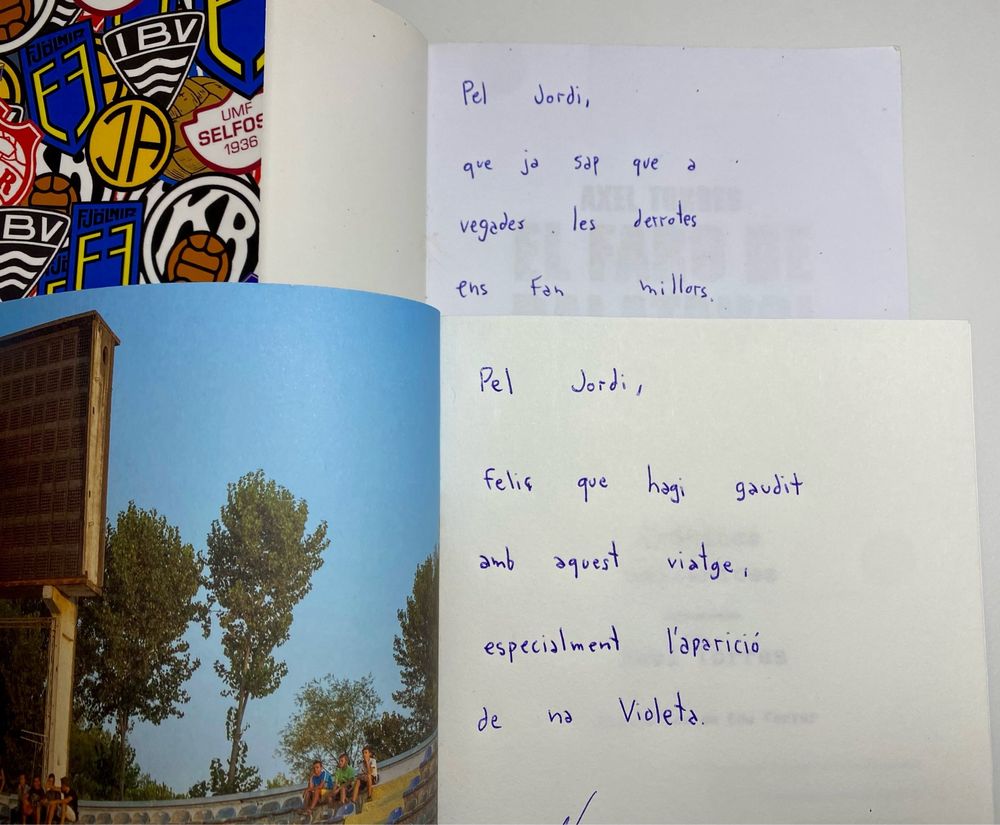 FJÖLNIR
IBV
JA
UMF
SELFOS
1936
KR
BV
FJÖLNIR
R
Pel Jordi,
que ja sap que a
vegades les derrotes
ens fan millors.
AXEL TORRES
EL FARO DE
Pel Jordi,
feliç que hagi gaudit
amb aquest viatge,
especialment l'aparició
de na Violeta.